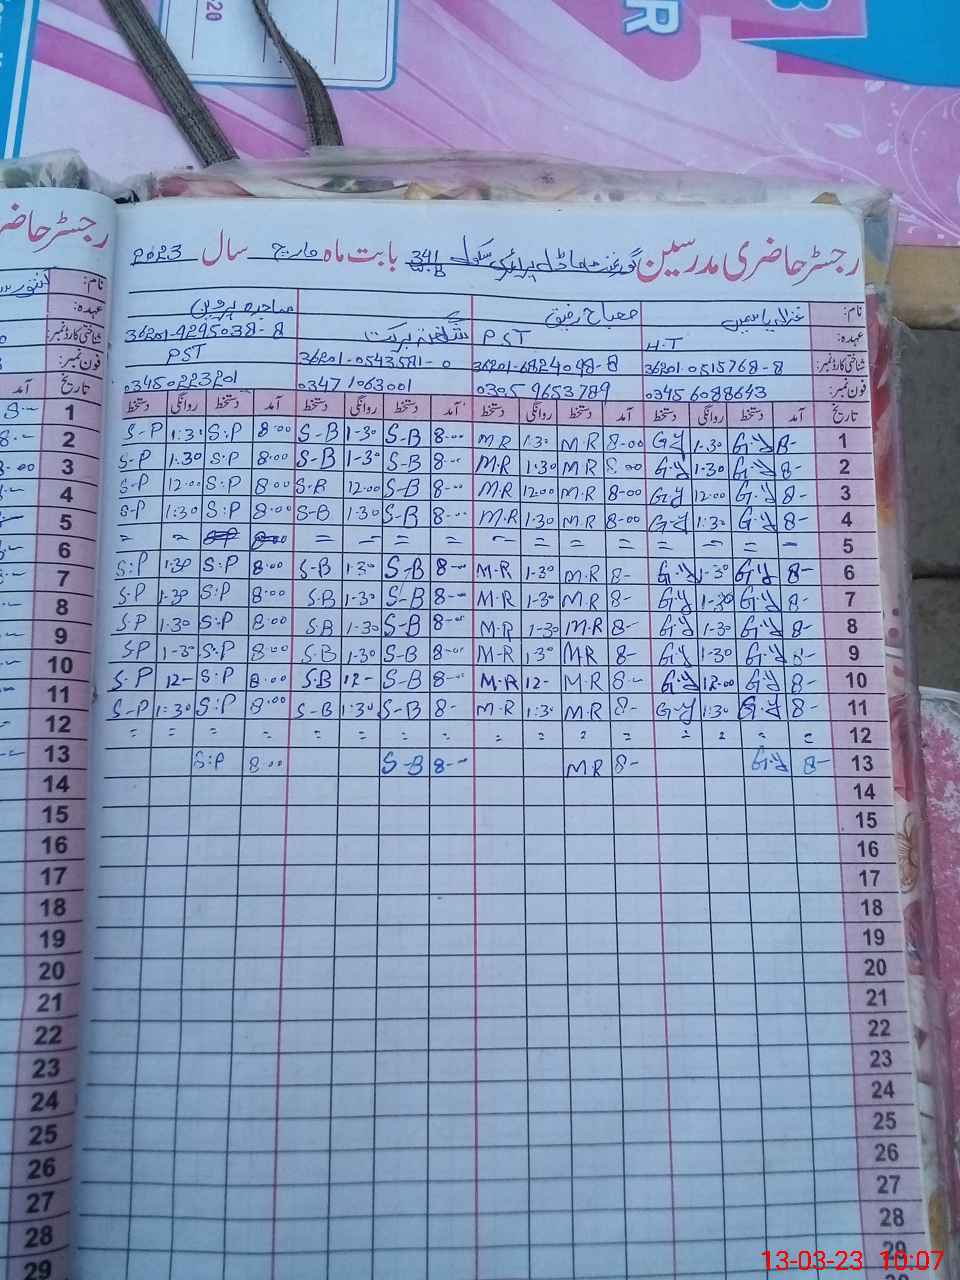 رجسٹر حاضری مدرسین گورنمنٹ ماڈل پرائمری سکول 341 بابت ماہ مارچ سال 2023
نام: غزالہ یاسمین مصباح رفیق صاجرہ پروین
عہدہ: H.T PST
شناختی کارڈ نمبر: 36201-0515768-8 36201-6824098-8 36201-0543581-0 36201-9295038-8
PST
فون نمبر: 03456088643 03059653789 03471063001 03450223201
تاریخ آمد دستخط روانگی دستخط آمد دستخط روانگی دستخط آمد دستخط روانگی دستخط آمد دستخط روانگی دستخط
1 8- G.Y 1-30 G.Y 8-00 M.R 1:30 M.R 8-00 S-B 1-30 S-B 8.00 S:P 1:30 S-P
2 8- G.Y 1-30 G.Y 8.00 M.R 1:30 M.R 8-- S-B 1-30 S-B 8.00 S:P 1.30 S-P
3 8- G.Y 12.00 G.Y 8-00 M.R 12.00 M.R 8-00 S-B 12.00 S-B 8.00 S:P 12.00 S-P
4 8- G.Y 1:30 G-Y 8-00 M.R 1.30 M.R 8-00 S-B 1:30 S-B 8.00 S:P 1:30 S-P
5 - = = = = = = - = = - = 8.00 S:P = =
6 8- G.Y 1-30 G.Y 8- M.R 1-30 M-R 8-00 S-B 1:30 S-B 8.00 S:P 1:30 S:P
7 8- G.Y 1-30 G.Y 8- M.R 1-30 M-R 8-00 S-B 1-30 S.B 8.00 S:P 1-30 S.P
8 8- G.Y 1-30 G.Y 8- M.R 1-30 M-R 8-00 S-B 1-30 S.B 8.00 S:P 1-30 S.P
9 8- G.Y 1-30 G.Y 8- M.R 1.30 M-R 8-00 S-B 1-30 S.B 8.00 S:P 1-30 S.P
10 8- G.Y 12.00 G.Y 8-- M.R 12- M.R 8-00 S-B 12- S.B 8.00 S:P 12- S.P
11 8- G-Y 1:30 G-Y 8- M.R 1:30 M-R 8- S-B 1:30 S-B 8.00 S:P 1:30 S-P
12 = = = = = = = = = = = = = = = =
13 8- G.Y 8- M.R 8-- S-B 8.00 S:P
14
15
16
17
18
19
20
21
22
23
24
25
26
27
28
29
رجسٹر حاضر
نام:
عہدہ:
شناختی کارڈ نمبر:
فون نمبر:
تاریخ آمد
1 8--
2 8--
3 8.00
4
5
6
7
8
9
10
11
12
13
14
15
16
17
18
19
20
21
22
23
24
25
26
27
28
29
20
R
13-03-23 10:07